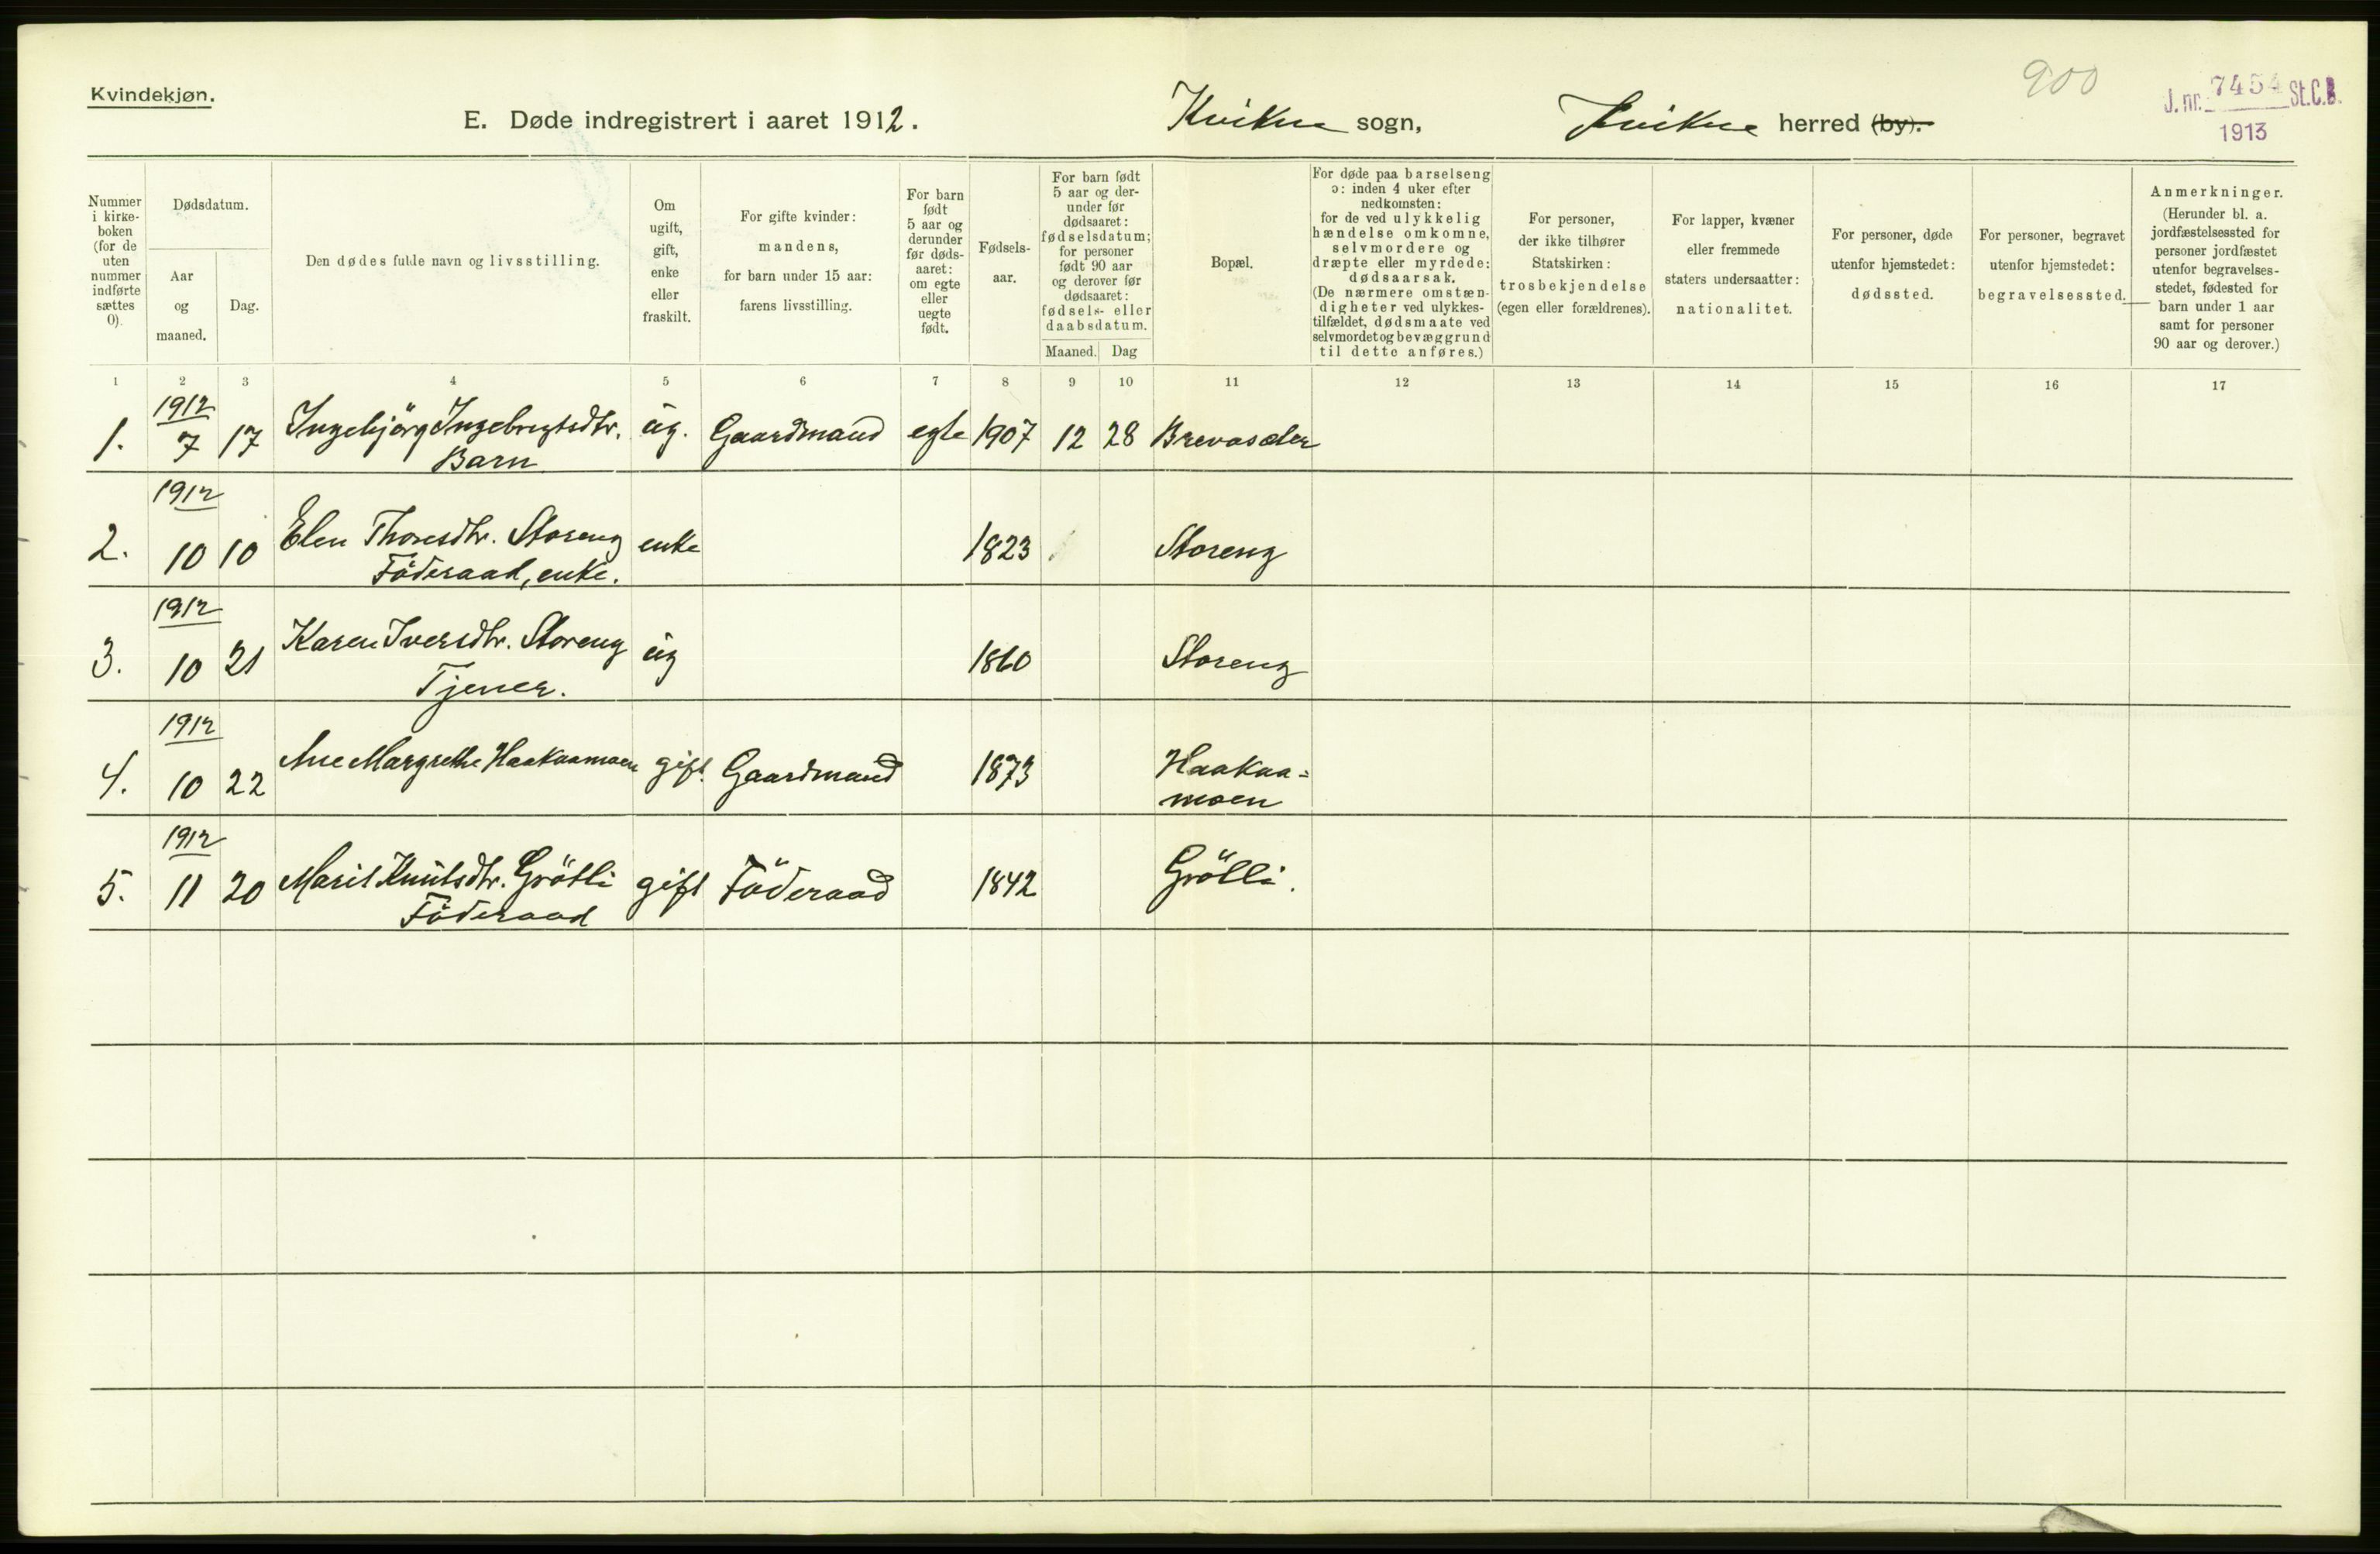 Kvindekjøn.
E. Døde indregistrert i aaret 1912.
Kvikne sogn,
Kvikne herred (by).
900
J. nr. 7454 St.C.B.
1913
Nummer
i kirke-
boken
(for de
uten
nummer
indførte
sættes
0).
Dødsdatum.
Aar
og
maaned.
Dag.
Den dødes fulde navn og livsstilling.
Om
ugift,
gift,
enke
eller
fraskilt.
For gifte kvinder:
mandens,
for barn under 15 aar:
farens livsstilling.
For barn
født
5 aar og
derunder
før døds-
aaret:
om egte
eller
uegte
født.
Fødsels-
aar.
For barn født
5 aar og der-
under før
dødsaaret:
fødselsdatum;
for personer
født 90 aar
og derover før
dødsaaret:
fødsels- eller
daabsdatum.
Maaned. Dag
Bopæl.
For døde paa barselseng
ɔ: inden 4 uker efter
nedkomsten:
for de ved ulykkelig
hændelse omkomne,
selvmordere og
dræpte eller myrdede:
dødsaarsak.
(De nærmere omstæn-
digheter ved ulykkes-
tilfældet, dødsmaate ved
selvmordet og bevæggrund
til dette anføres.)
For personer,
der ikke tilhører
Statskirken:
trosbekjendelse
(egen eller forældrenes).
For lapper, kvæner
eller fremmede
staters undersaatter:
nationalitet.
For personer, døde
utenfor hjemstedet:
dødssted.
For personer, begravet
utenfor hjemstedet:
begravelsessted.
Anmerkninger.
(Herunder bl. a.
jordfæstelsessted for
personer jordfæstet
utenfor begravelses-
stedet, fødested for
barn under 1 aar
samt for personer
90 aar og derover.)
1 2 3 4 5 6 7 8 9 10 11 12 13 14 15 16 17
1912
1. 7 17 Ingebjörg Ingebregtsdtr. ug. Gaardmand egte 1907 12 28 Brevasæter
Barn
1912
2. 10 10 Elen Thoresdtr. Storeng enke 1823 Storeng
Föderaad, enke.
1912
3. 10 21 Karen Iversdtr. Storeng ug 1860 Storeng
Tjener.
1912
4. 10 22 Ane Margrethe Haakaamoen gift Gaardmand 1873 Haakaa=
moen
1912
5. 11 20 Marit Knutsdtr. Grötli gift Föderaad 1842 Grötli.
Föderaad